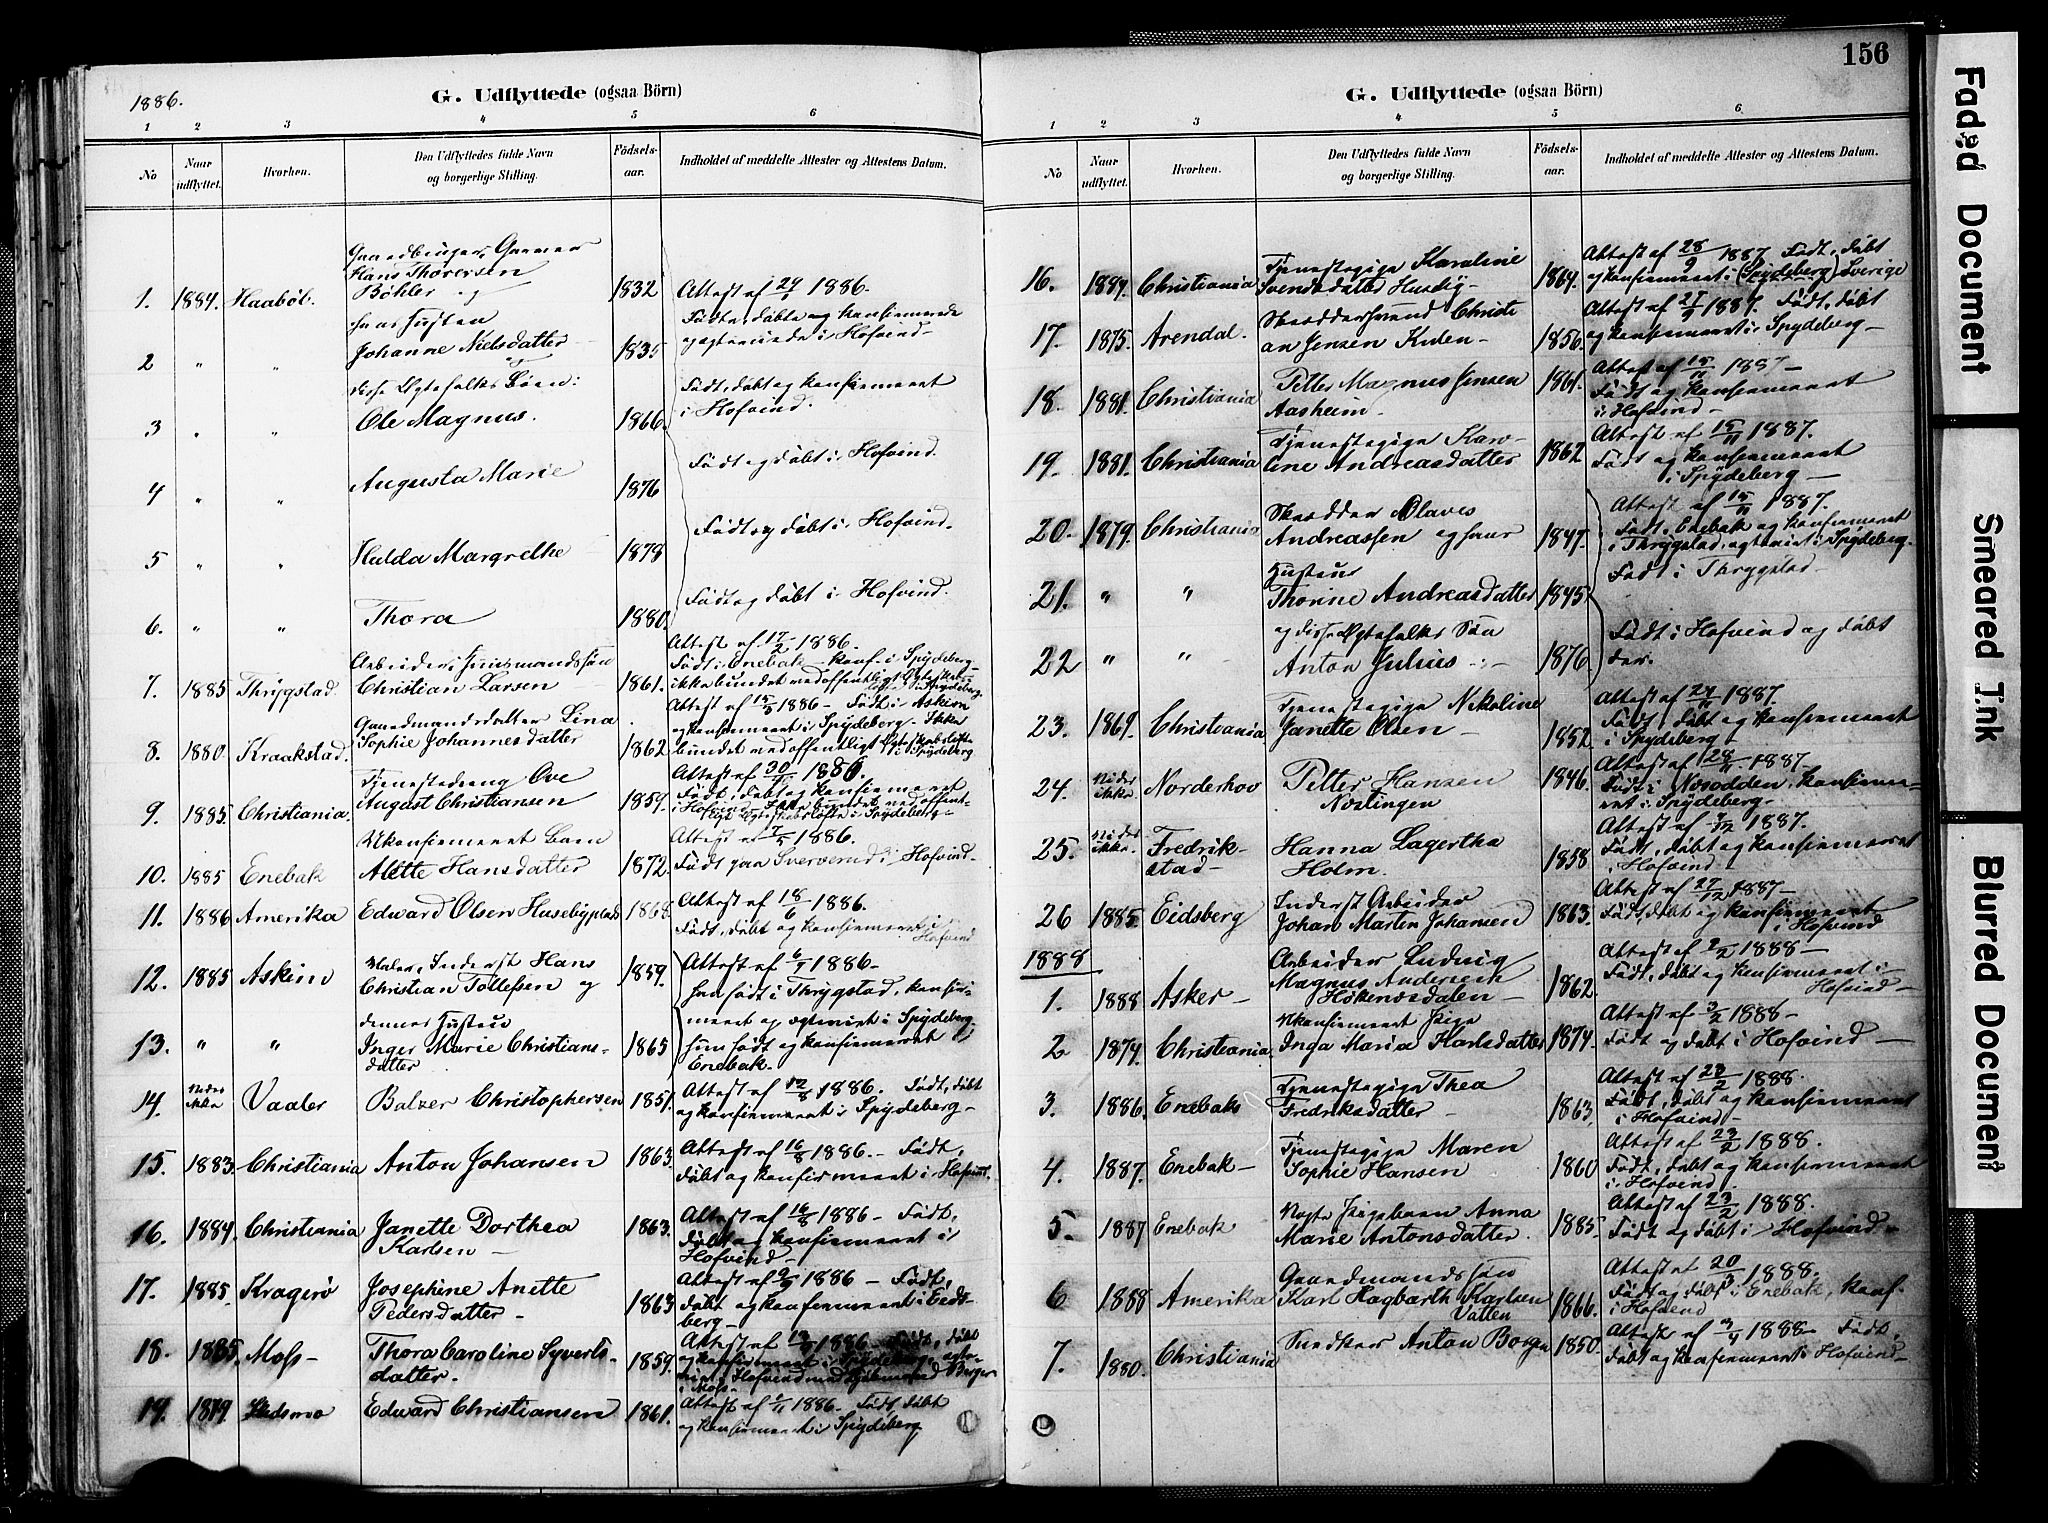 1886.
G. Udflyttede (ogsaa Börn)
1 2 3 4 5 6
No Naar udflyttet. Hvorhen. Den Udflyttedes fulde Navn og borgerlige Stilling. Födsels-aar. Indholdet af meddelte Attester og Attestens Datum.
Gaardbruger, Gunnar
Hans Thoresen
1. 1884. Haabøl. Bøhler og 1832 Attest af 1886.
hans Hustru Födte, döbte og konfirmerede
2 " " Johanne Nielsdatter 1835 og ægteviede i Hofvind
disse Ægtefolks Börn: Födt, döbt og konfirmeret
3 " " Ole Magnus. 1866. i Hofvind.
4 " " Augusta Marie 1876 Födt og döbt i Hofvind.
5 " " Hulda Margrethe 1878 Födt og döbt i Hofvind.
6. " " Thora 1880. Födt og döbt i Hofvind.
Attest af 17/2 1886.
Arbeider, Husmandssön Födt i Enebak - konf. i Spydeberg -
7. 1885 Thrygstad. Christian Larsen 1861. ikke bundet ved offentligt
i Spydeberg
Attest af 15/3 1886 - Födt i Askim
Gaardmandsdatter Lina og konfirmeret i Spydeberg - Ikke
8. 1880. Kraakstad. Sophie Johannesdatter 1862 bundet ved offentligt Ægteskabslöfte i Spydeberg
Tjenestedreng Ove Attest af 1886.
9. 1885. Christiania. August Christiansen 1859. Födt, döbt og konfirmeret
i Hofvind - Ikke bundet ved offent-
ligt Ægteskabslöfte i Spydeberg -
Ukonfirmeret Barn Attest af 7/5 1886.
10. 1885 Enebak Alette Hansdatter 1872. Födt paa i Hofvind.
11. 1886 Amerika Edward Olsen Husebyplads 1868. Attest af 18/6 1886.
Födt, döbt og konfirmeret i Hofvind
Inderst Hans Attest af 1886 -
12. 1885 Askim Christian Tollefsen og 1859. han födt i Thrygstad, konfir-
dennes Hustru meret og ægteviet i Spydeberg
13. " " Inger Marie Christians- 1865 hun födt og konfirmeret i
datter Enebak.
14. Vides ikke Vaaler Balzer Christophersen 1851. Attest af 12/8 1886. Födt, döbt
og konfirmeret i Spydeberg -
15. 1883. Christiania Anton Johansen 1863. Attest af 16/8 1886. - Födt,
döbt og konfirmeret i Hofvind.
16. 1884. Christiania Janette Dorthea 1863. Attest af 16/8 1886 - Födt,
Karlsen - döbt og konfirmeret i
Hofvind -
17. 1885. Kragerö Josephine Anette Attest af 1886 - Födt,
Pedersdatter - 1863 döbt og konfirmeret i Eids-
berg -
18. 1885. Moss - Thora Caroline Syverts- 1859. Attest af 1886 Födt, döbt
datter. og konfirmeret i Spydeberg,
i Hofvind med
i Moss -
19. 1879. Hedsmo Edward Christiansen 1861. Attest af 1886 Födt, döbt
og konfirmeret i Spydeberg
156
G. Udflyttede (ogsaa Börn)
1 2 3 4 5 6
No Naar udflyttet. Hvorhen. Den Udflyttedes fulde Navn og borgerlige Stilling. Födsels-aar. Indholdet af meddelte Attester og Attestens Datum.
Tjenestepige Karoline Attest af 28/9 1887. Födt, döbt
16. 1884. Christiania Svendsdatter 1864. og konfirmeret i Spydeberg
Christi Attest af 1887. Födt, döbt
17. 1875. Arendal. an Jensen 1856. og konfirmeret i Spydeberg -
18. 1881. Christiania Petter Magnus Jensen 1861. Attest af 15/11 1887 -
Aasheim. - Födt og konfirmeret
i Hofvind -
Tjenestepige Karo- Attest af 15/11 1887.
19. 1881. Christiania line Andreasdatter 1862 Födt og konfirmeret
i Spydeberg -
Skrædder Olaves Attest af 15/11 1887.
20. 1879. Christiania Andreassen og hans 1847. Födt i Enebak og konfirmeret
i Thrygstad, ægteviet i Spydeberg.
Hustru Födt i Thrygstad -
21. " " Thorine Andreasdatter 1845.
og disse Ægtefolks Sön Födt i Hofvind og döbt
22 " " Anton Julius 1876. der.
Tjenestepige Nikoline Attest af 1887.
23. 1869. Christiania Janette Olsen - 1852. Födt, döbt og konfirmeret
i Spydeberg
24. Vides ikke Norderhov Petter Hansen 1846. Attest af 1887.
Födt i Næsodden, konfirme-
ret i Spydeberg -
25. Vides ikke. Fredrik- Hanna Lagertha 1858. Attest af 1887.
stad - Holm. Födt, döbt og konfirmeret
i Hofvind
Inderst Arbeider Attest af 27/12 1887 -
26 1885. Eidsberg Johan Martin Johansen 1863. Födt, döbt og konfirmeret
i Hofvind
1888 Arbeider Ludvig Attest af 2/2 1888 -
1. 1888 Asker - Magnus Andersen 1862. Födt, döbt og konfirmeret i
Hofvind -
Ukonfirmeret Pige Attest af 3/2 1888 -
2 1874. Christiania. Inga Maria Karlsdatter 1874. Födt og döbt i Hofvind -
Tjenestepige Thea Attest af 23/2 1888.
3. 1886. Enebak Fredriksdatter - 1863, Födt, döbt og konfirmeret
i Hofvind -
Tjenestepige Maren Attest af 23/2 1888.
4. 1887. Enebak - Sophie Hansen 1860 Födt, döbt og konfirmeret
i Hofvind.
Pigebarn Anna Attest af 23/2 1888.
5. 1887 Enebak Marie Antonsdatter. 1885 Födt og döbt i Hofvind -
Gaardmandssön Attest af 20/3 1888.
6 1888 Amerika Karl Hagbarth Karlsen 1866. Födt og döbt i Enebak, konf.
Vatten i Hofvind
7. 1880. Christiania Anton Borgen 1850. Attest af 3/4 1888 - Födt,
döbt og konfirmeret i Hofvind -
Faded Document
Smeared Ink
Blurred Document